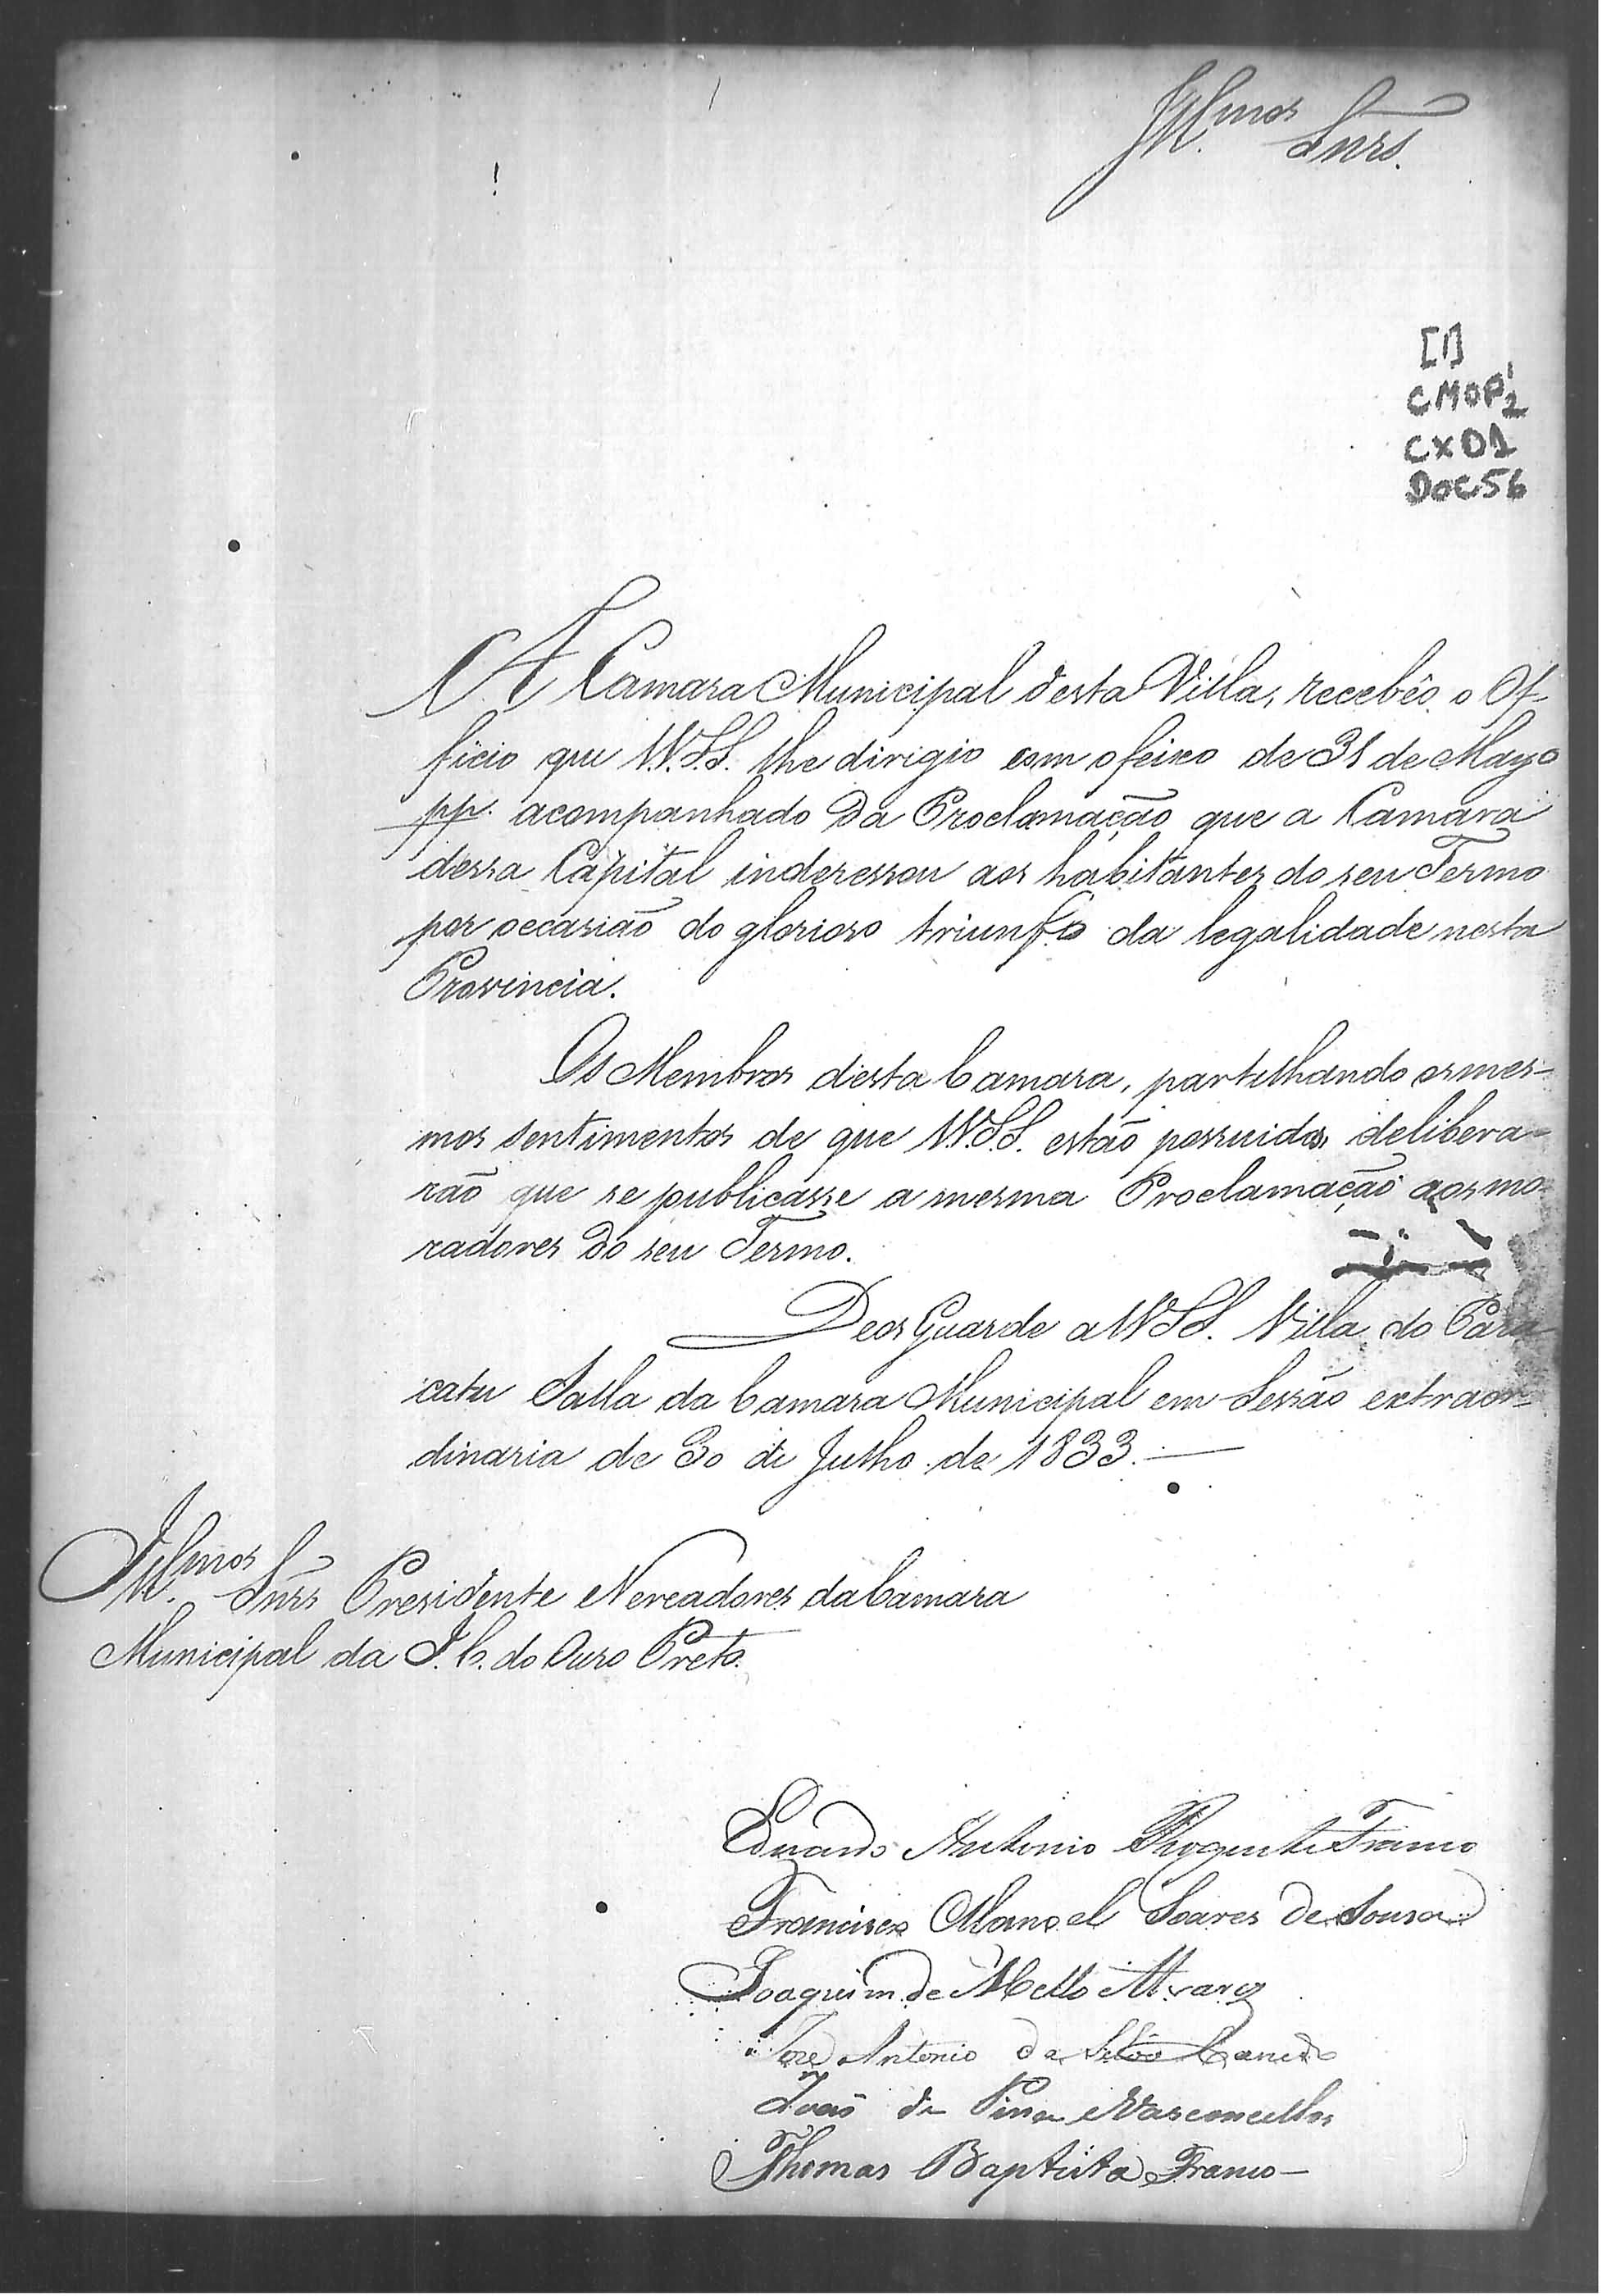 Illmos Snrs.
[1]
CMOP 1/2
CX01
DOC56
A Camara Municipal desta Villa, recebêo o Of-
ficio que V.V.S.S. lhe dirigio com o feixo de 31 de Mayo
pp. acompanhado da Proclamação que a Camara
dessa Capital inderessou aos habitantes do seu Termo
por occasião do glorioso triunfo da legalidade nesta
Provincia.
Os Membros desta Camara, partilhando os mes-
mos sentimentos de que V.V.S.S. estão possuidos, delibera-
rão que se publicasse a mesma Proclamação aos mo-
radores do seu Termo.
Deos Guarde a VVSS. Villa do Para
catu Salla da Camara Municipal em Sessão extraor-
dinaria de 30 de Julho de 1833.
Illmos Snrs Presidente e Vereadores da Camara
Municipal da I. C. do Ouro Preto.
Eduardo Antonio Franco
Francisco Manoel Soares de Sousa
Joaquim de Mello Alvarez
José Antonio da Silva Canedo
João de Pina e Vasconcellos
Thomas Baptista Franco